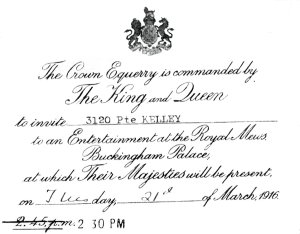 The Crown Equerry is commanded by
The King and Queen
to invite 3120 Pte KELLEY
to an Entertainment at the Royal Mews
Buckingham Palace,
at which Their Majesties will be present,
on Tuesday, 21st of March, 1916.
2.45.p.m. 2 30 PM